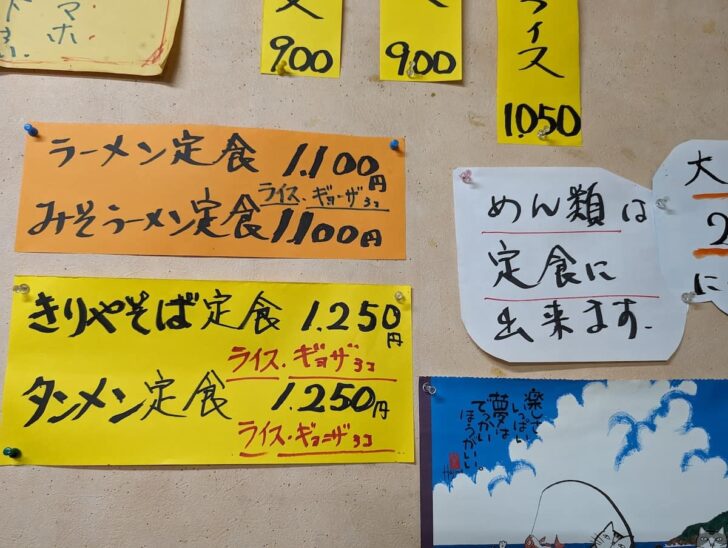 マホ
900
900
ライス
1050
ラーメン定食 1.100円
ライス・ギョーザ3コ
みそラーメン定食 1.100円
きりやそば定食 1.250円
ライス・ギョーザ3コ
タンメン定食 1.250円
ライス・ギョーザ3コ
めん類は
定食に
出来ます.
大
2
に
楽しさ
いっぱい
夢は
でっかい
ほうがいい。